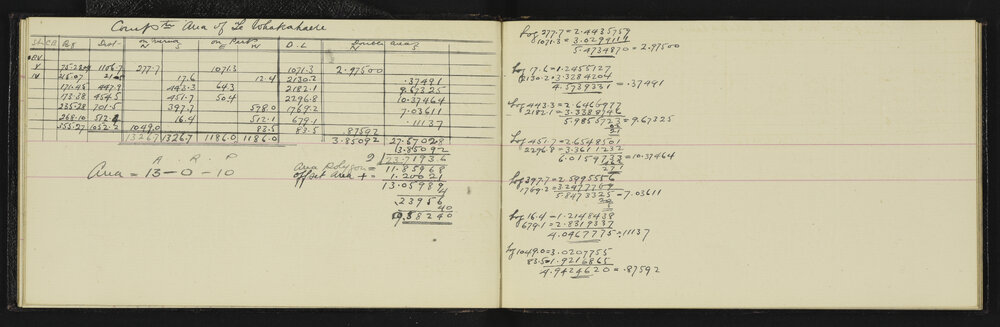 Compn Area of Te Whakahaere
on Merid on Perp Double Area
St CB Bg Dist N S E W D.L N
V 75·28 1106·7 277·7 1071·3 1071·3 2·97500
IV 215·07 17·6 12·4 2130·2 ·37491
171·48 447·9 443·3 64·3 2182·1 9·67325
173·38 454·5 451·7 50·4 2296·8 10·37464
235·28 701·5 397·7 578·0 1769·2 7·03611
268·10 512·4 16·4 512·1 679·1 ·11137
355·27 1052·2 1049·0 83·5 83·5 ·87592
1326·7 1326·7 1186·0 1186·0 3·85092 27·57028
13·85092
A. R. P
2 23·71936
Area = 13 - 0 - 10
Area Polygon = 11·85968
offset area + = 1·20021
13·05989
4
·23956
40
9·58240
Log 277·7 = 2·4435759
1071·3 = 3·0299111
5·4734870 = 2·97500
Log 17·6 = 1·2455127
2130·2 = 3·3284204
4·5739331 = ·37491
Log 443·3 = 2·6466977
2182·1 = 3·3388746
5·9855723 = 9·67325
Log 451·7 = 2·6548501
2296·8 = 3·3611232
6·0159733 = 10·37464
Log 397·7 = 2·5995556
1769·2 = 3·2477769
5·8473325 = 7·03611
Log 16·4 = 1·2148438
679·1 = 2·8319337
4·0467775 = ·11137
Log 1049·0 = 3·0207755
83·5 = 1·9216865
4·9424620 = ·87592